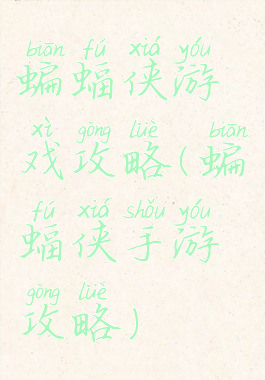 biān fú xiá yóu
蝙蝠侠游
xì gōng lüè biān
戏攻略(蝙
fú xiá shǒu yóu
蝠侠手游
gōng lüè
攻略)